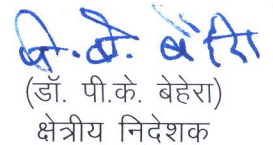 पी. के. बेहेरा
(डॉ. पी.के. बेहेरा)
क्षेत्रीय निदेशक